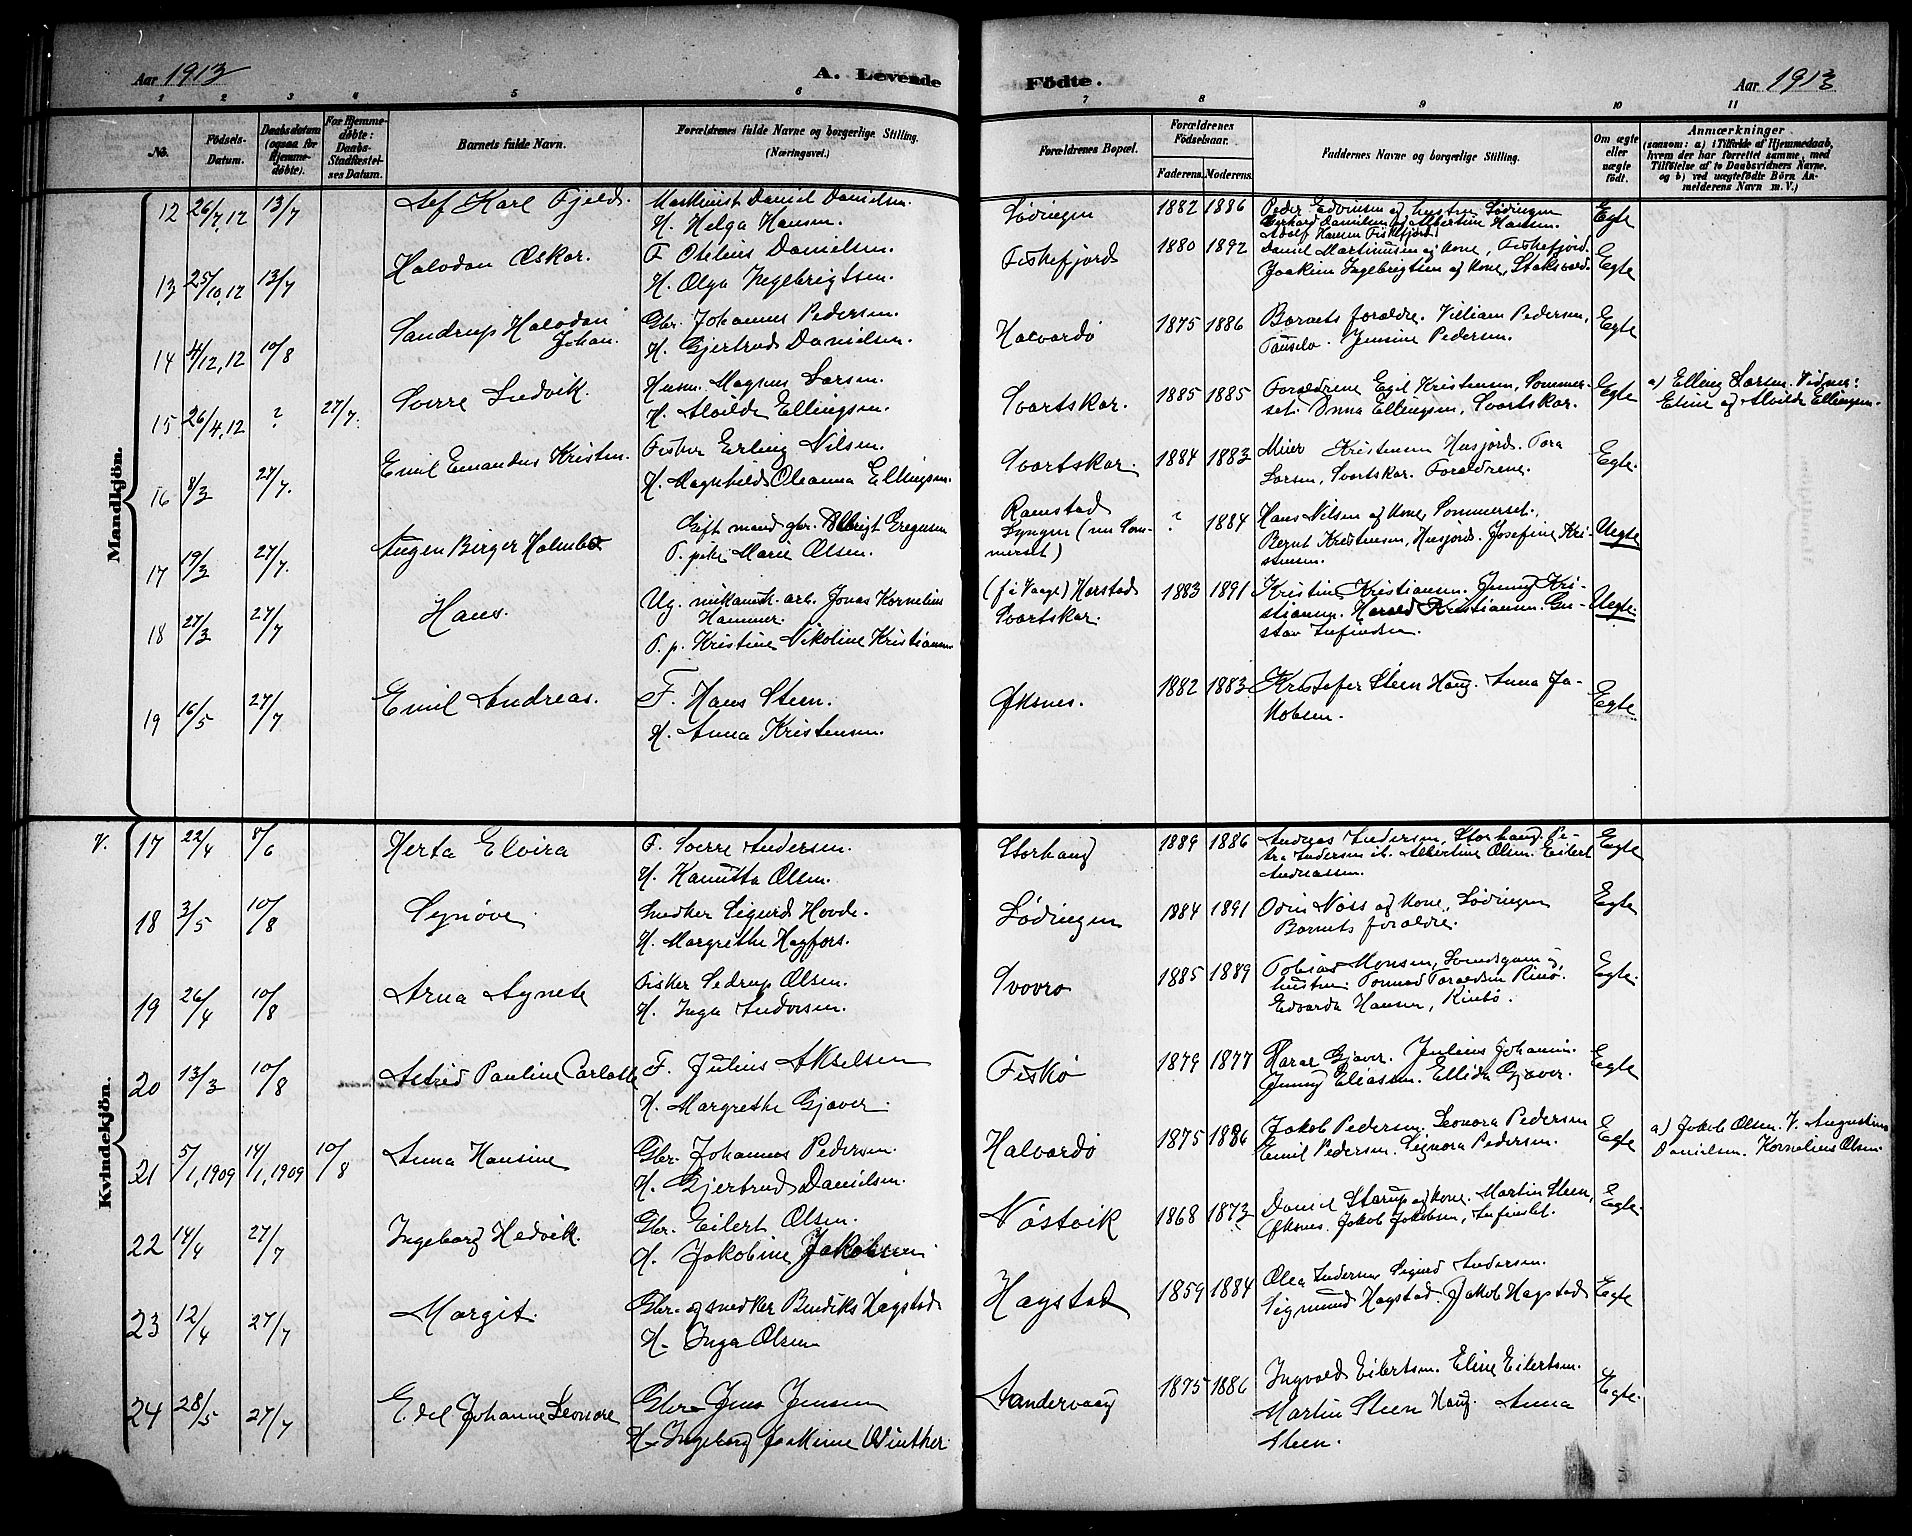 Aar 1913
A. Levende
Födte.
Aar 1913
1 2 3 4 5 6 7 8 9 10 11
No.
Födsels-
Datum.
Daabsdatum
(ogsaa for
Hjemme-
døbte).
For Hjemme-
døbte:
Daabs-
Stadfæstel-
ses Datum.
Barnets fulde Navn.
Forældrenes fulde Navne og borgerlige Stilling.
(Næringsvei.)
Forældrenes Bopæl.
Forældrenes
Födselsaar.
Faderens. Moderens.
Faddernes Navne og borgerlige Stilling.
Om ægte
eller
uægte
født.
Anmærkninger
(saasom: a) i Tilfælde af Hjemmedaab,
hvem der har forrettet samme, med
Tilföielse af to Daabsvidners Navne,
og b) ved uægtefödte Börn An-
melderens Navn m. V.)
Mandkjön.
12 26/7,12 13/7 Leif Karl Fjeld. Maskinist Daniel Danielsen.
H. Helga Hansen.
Lødingen 1882 1886 Peder Edvinsen og hustru Lødingen
Gerhard Danielsen og Albertine Hansen.
Adolf Hansen Fiskefjord.
Egte
13 25/10,12 13/7 Halvdan Oskar. F. Otelius Danielsen.
H. Olga Ingebrigtsen.
Fiskefjord 1880 1892 Daniel Martinusen og kone, Fiskefjord.
Joakim Ingebrigtsen og kone, Stoksvold.
Egte
14 4/12,12 10/8 Sandrup Halvdan
Johan.
Gbr. Johannes Pedersen.
H. Gjertrud Danielsen.
Halvardø 1875 1886 Barnets forældre. Villiam Pedersen,
Jensine Pedersen.
Egte
15 26/4,12 ? 27/7. Sverre Ludvik. Husm. Magnus Larsen.
H. Alvilde Ellingsen.
Svartskar. 1885 1885 Forældrene Egil Kristensen, Sommer-
set. Anna Ellingsen, Svartskar.
Egte
a) Elling Larsen. Vidner:
Eline og Alvilde Ellingsen.
16 8/3 27/7. Emil Emandus Kristen. Fisker Erling Nilsen.
H. Magnhild Oleanna Ellingsen.
Svartskar. 1884 1883 Meier Kristensen Husjord. Tora
Larsen, Svartskar. Forældrene.
Egte.
17 19/3 27/7. Augen Birger Holmbo Gift mand gbr. Albrigt Gregusen
T. pike Marie Olsen.
Ramstad
Lyngen (nu Som-
merset)
? 1884 Hans Nilsen og kone, Sommerset.
Bernt Kristensen, Husjord. Josefine Kri-
stensen.
Uegte
18 27/3 27/7 Hans. Ug. mekanisk. arb. Jonas Kornelius
Hammer.
T. p. Kristine Nikoline Kristiansen
(f i Vaage) Harstad
Svartskar.
1883 1891 Kristine Kristiansen. Jenny Kri-
stiansen. Harald Kristiansen. Gu-
stav
Uegte.
19 16/5 27/7 Emil Andreas. F. Hans Steen.
H. Anna Kristensen.
Øksnes. 1882 1883 Kristofer Steen Haug. Anna Ja-
kobsen.
Egte.
Kvindekjön.
V. 17 22/4 8/6 Herta Elvira F. Sverre Andersen.
H. Kamitta Olsen.
Storhaug 1889 1886 Andreas Andersen, Storhaug. Pe-
tra Andersen ib. Albertine Olsen. Eilert
Andreassen.
Egte
18 3/5 10/8 Synøve Snedker Sigurd Hovde.
H. Margrethe Hagfors.
Lødingen 1884 1891 Odin Næss og kone, Lødingen
Barnets forældre.
Egte
19 26/4 10/8 Arna Agnete Fisker Sedrup Olsen.
H. Inga Andersen.
Svovro 1885 1889 Tobias Monsen,
hustru. Rinø.
Edvarda Hansen, Rinbø.
Egte.
20 13/3 10/8 Astrid Pauline Carlotte F. Julius Akselsen
H. Margrethe Gjæver.
Fiskø 1879 1877 Gjæver. Julius Johansen.
Jenny Eliassen. Ellida Gjæver.
Egte
21 5/1,1909 14/1,1909 10/8 Anna Hansine Gbr. Johannes Pedersen.
H. Gjertrud Danielsen.
Halvardø 1875 1886 Jakob Pedersen. Leonora Pedersen
Emil Pedersen. Signora Pedersen.
Egte
a) Jakob Olsen. V. Augustinus
Danielsen. Kornelius Olsen.
22 14/4 27/7 Ingeborg Hedvik. Gbr. Eilert Olsen.
H. Jakobine Jakobsen.
Nøstvik 1868 1873 Daniel Starup og kone. Martin Steen,
Øksnes. Jakob Jakobsen,
Egte.
23 12/4 27/7 Margit. Gbr. og snedker Bendiks Hagstad
H. Inga Olsen
Hagstad 1859 1884 Olea Andersen Sigurd Andersen.
Sigmund Hagstad. Jakob Hagstad
Egte
24 28/5 27/7 Edel Johanne Leonore Gbr. Jens Jensen
H. Ingeborg Joakime Winther.
Sandervaag 1875 1886 Ingvald Eilertsen. Eline Eilertsen.
Martin Steen Haug. Anna
Steen.
Egte.